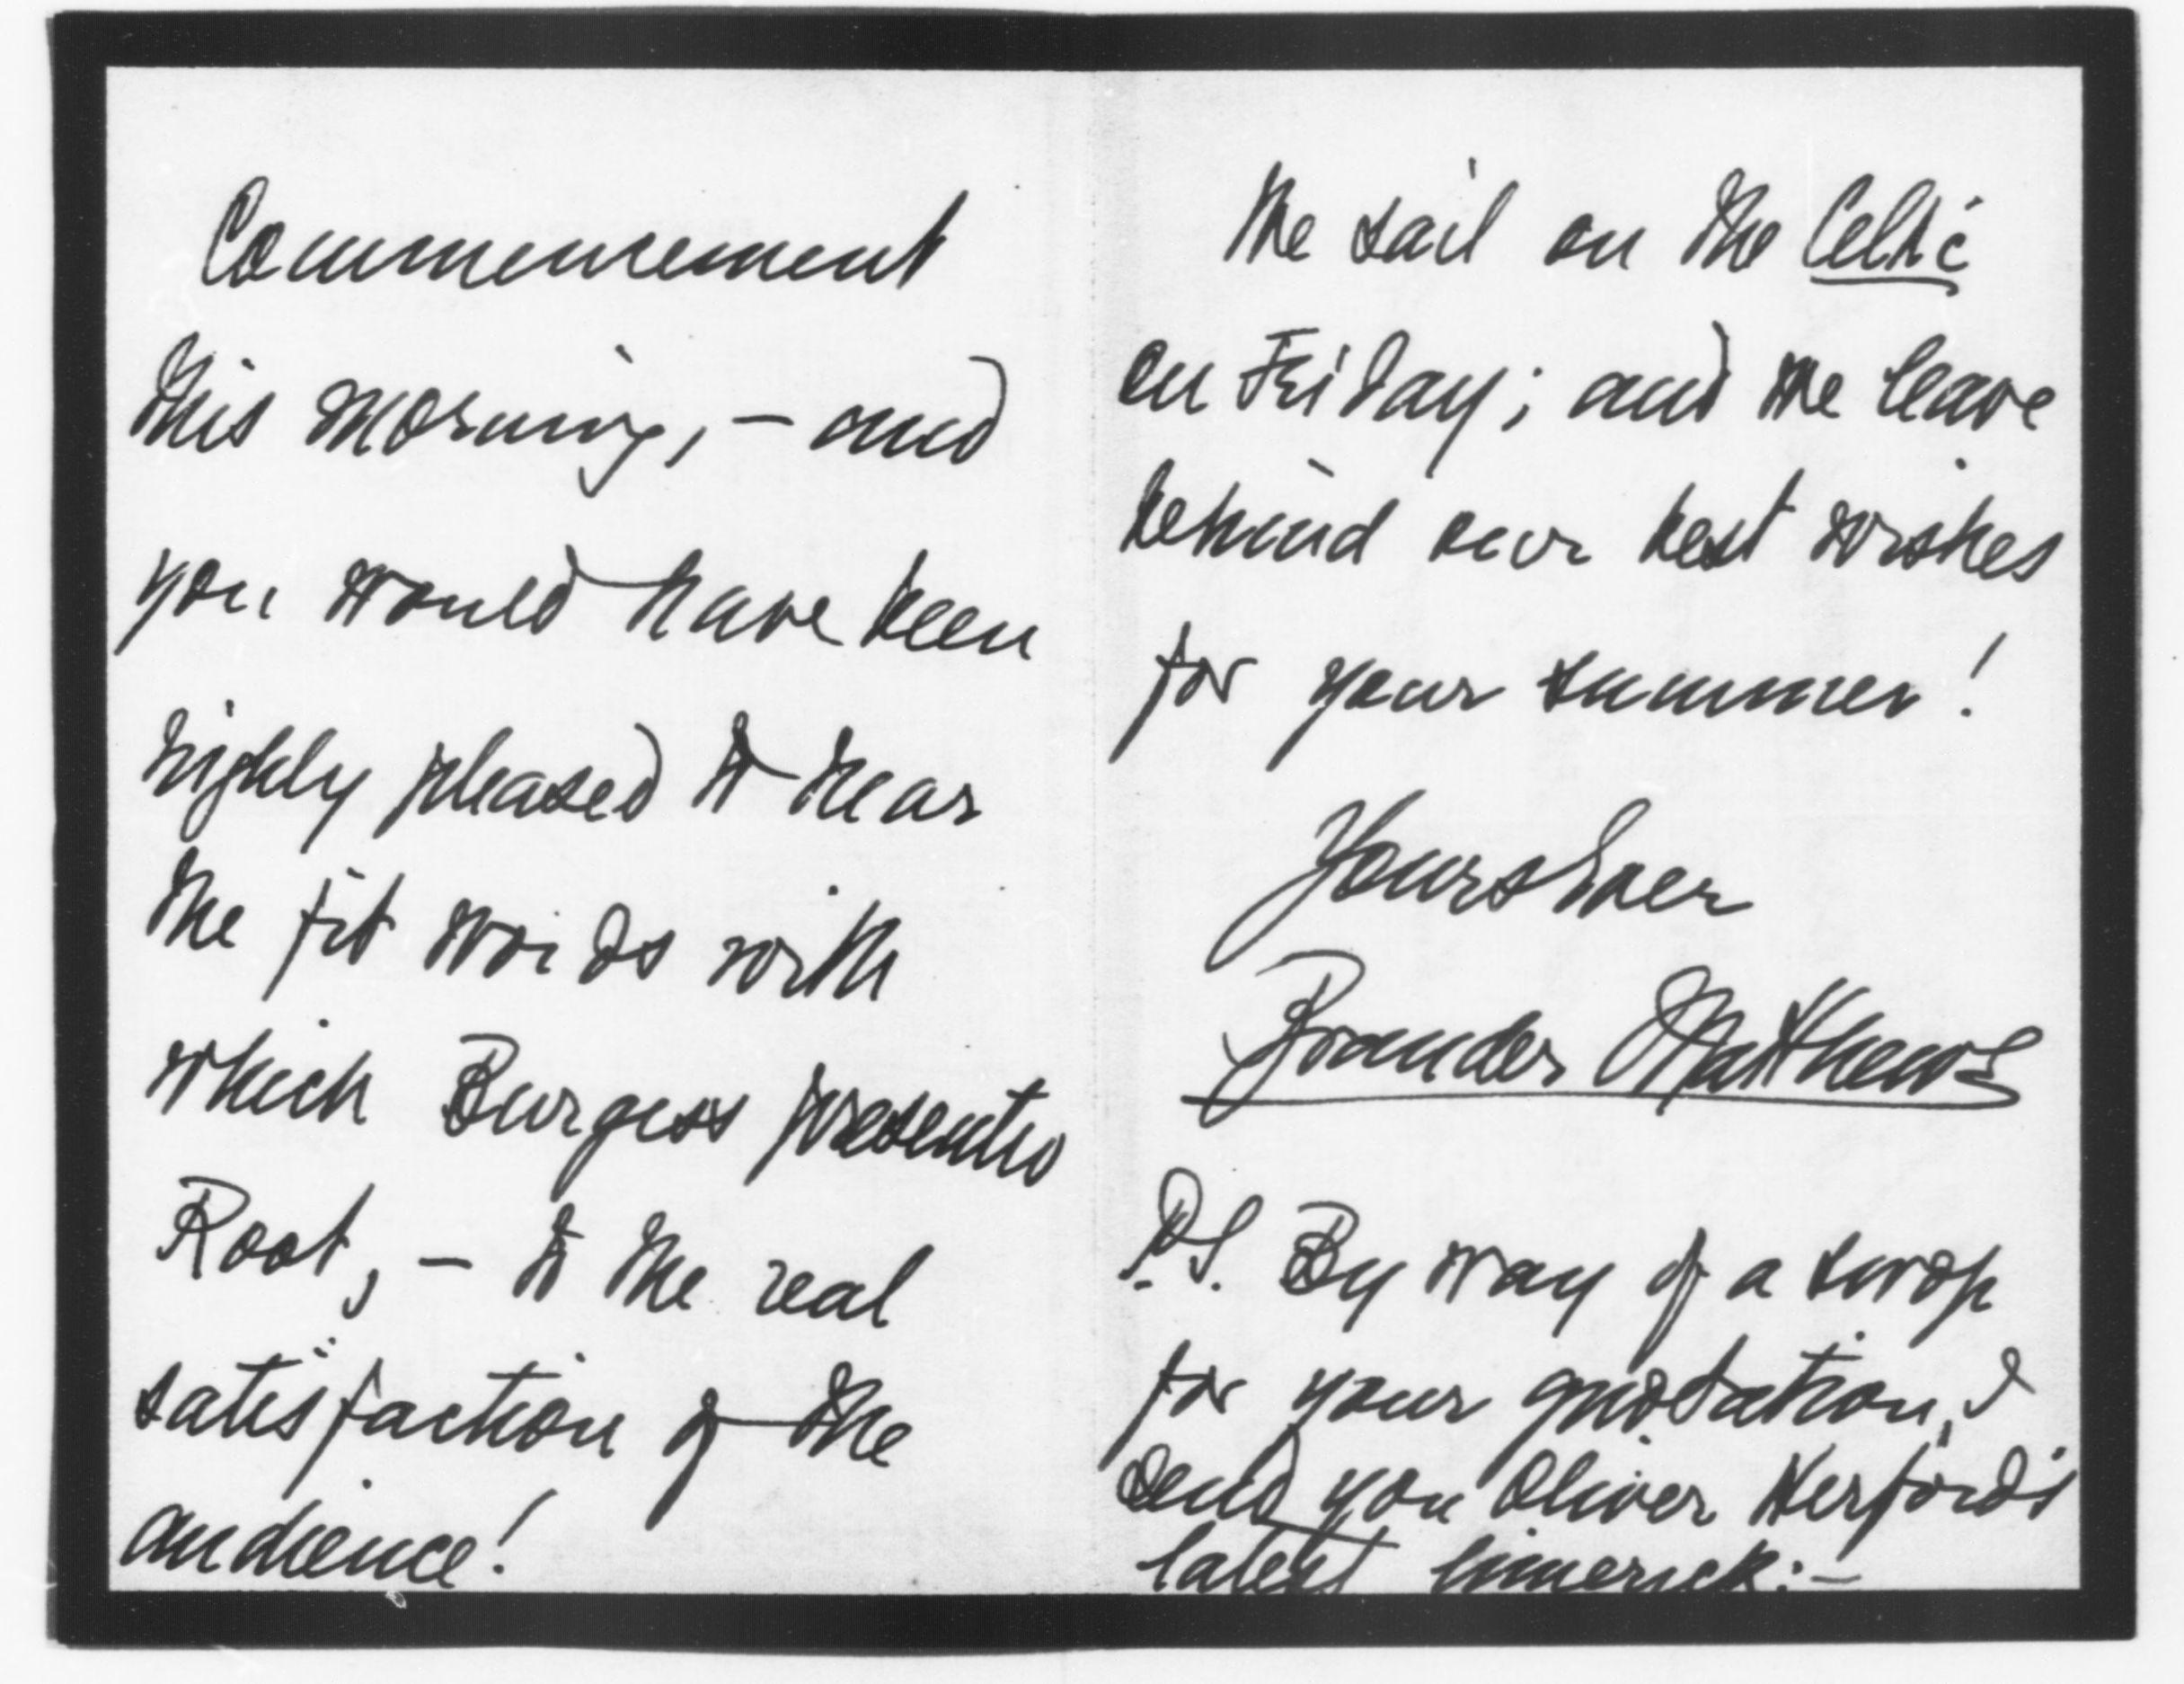 Commencement
this morning, – and
you would have been
highly pleased to hear
the fit words with
which Burgess presented
Root, – to the real
satisfaction of the
audience!
We sail on the Celtic
on Friday; and we leave
behind our best wishes
for your summer!
Yours Ever
Brander Matthews
P.S. By way of a swop
for your quotation, I
send you Oliver Herford's
latest limerick: –